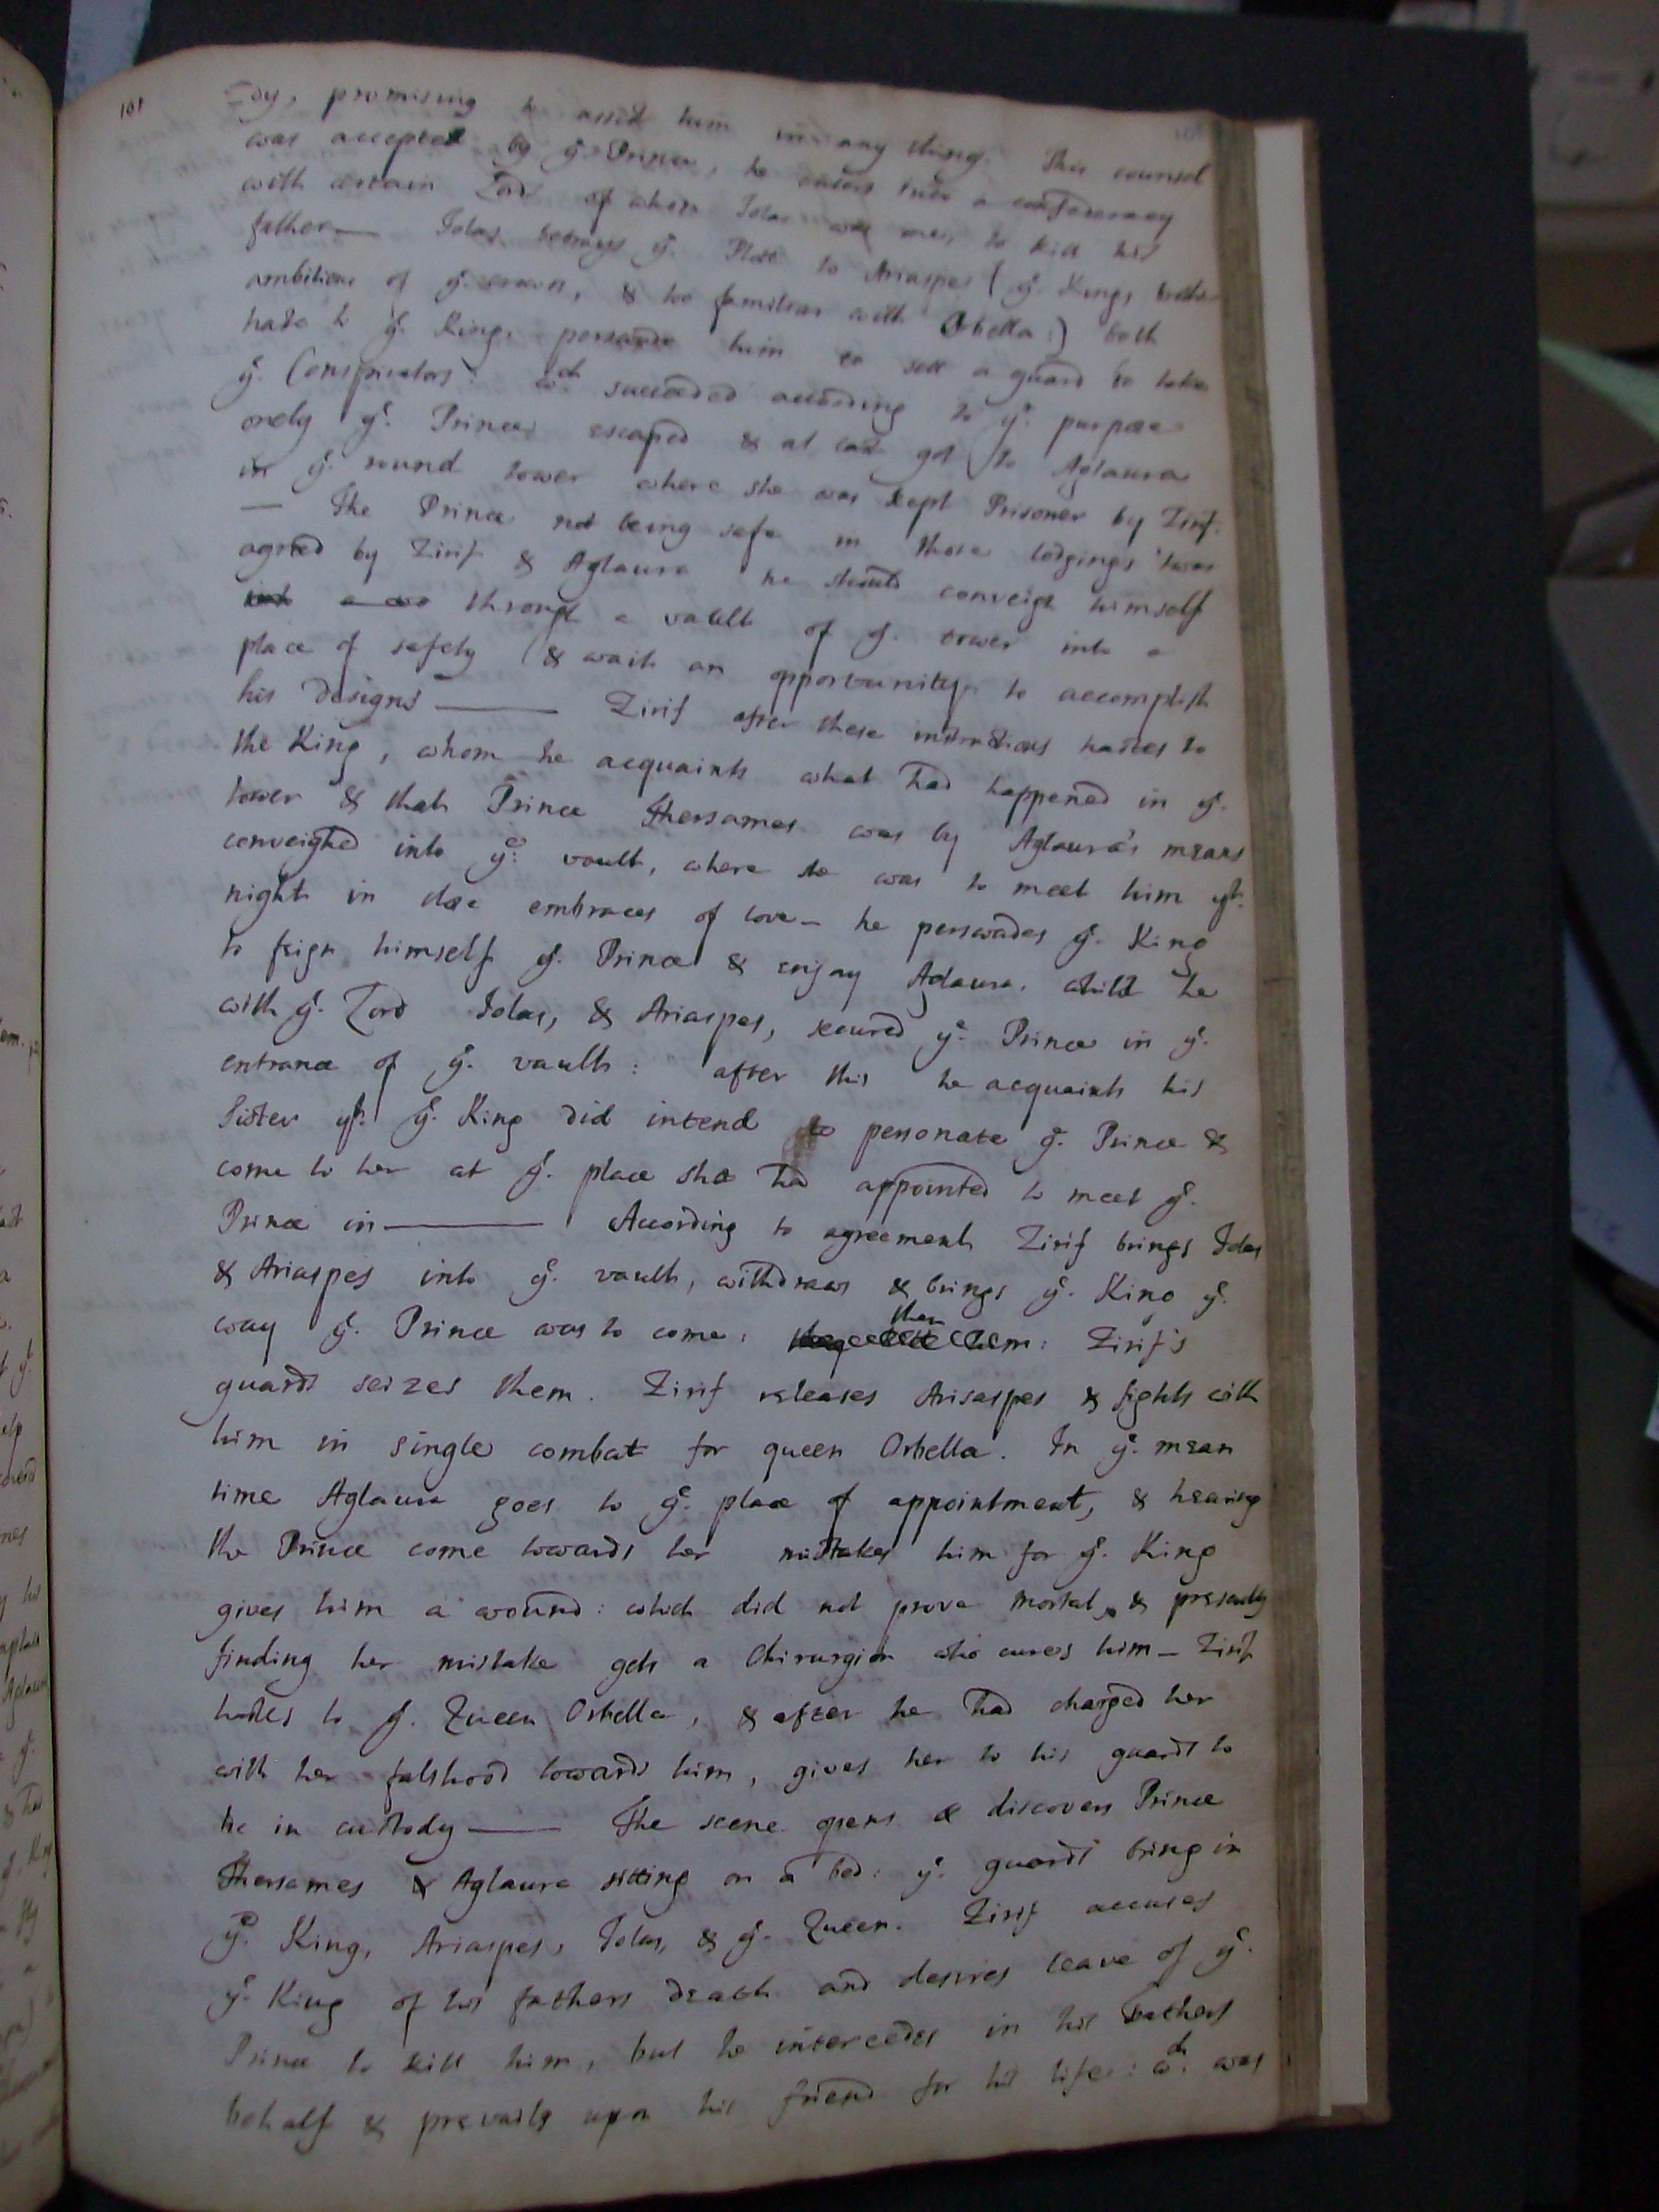 101
joy, promising to assist him in any thing. This counsel
was accepted by ye. Prince, he enters into a confederacy
with certain Lords of whom Iolas was one, to kill his
father— Iolas betrays ye. Plot to Ariaspes (ye. Kings brother
ambitious of ye. crown, & too familiar with Orbella:) both
hast to ye. King, perswade him to sett a guard to take
ye. Conspirators: wch succeeded according to ye. purpose
onely ye. Prince escaped & at last got to Aglaura
in ye. round tower where she was kept Prisoner by Zirif.
— The Prince not being safe in those lodgings 'twas
agreed by Zirif & Aglaura he should conveigh himself
through a vault of ye. tower into a
place of safety (& wait an opportunity to accomplish
his designs —— Zirif after these instructions hastes to
the King, whom he acquaints what had happened in ye.
tower & that Prince Thersames was by Aglaura's means
conveighed into ye. vault, where she was to meet him yt.
night in close embraces of love— he perswades ye. King
to feign himself ye. Prince & enjoy Aglaura, whilst he
with ye. Lord Iolas, & Ariaspes, secured ye. Prince in ye.
entrance of ye. vault: after this he acquaints his
Sister yt. ye. King did intend to personate ye. Prince &
come to her at ye. place she had appointed to meet ye.
Prince in —— According to agreement Zirif brings Iolas
& Ariaspes into ye. vault, withdraws & brings ye. King ye.
way ye. Prince was to come: then Zirif's
guards seizes them. Zirif releases Arisaspes & fights with
him in single combat for queen Orbella. In ye. mean
time Aglaura goes to ye. place of appointment, & hearing
the Prince come towards her mistakes him for ye. King
gives him a wound: which did not prove mortal, & presently
finding her mistake gets a Chirurgion who cures him— Zirif
hastes to ye. Queen Orbella, & after he had charged her
with her falshood towards him, gives her to his guards to
be in custody —— The scene opens & discovers Prince
Thersames & Aglaura sitting on a bed: ye. guards bring in
ye. King, Ariaspes, Iolas, & ye. Queen. Zirif accuses
ye. King of his fathers death and desires leave of ye.
Prince to kill him, but he intercedes in his Fathers
behalf & prevails upon his friend for his life: wch. was